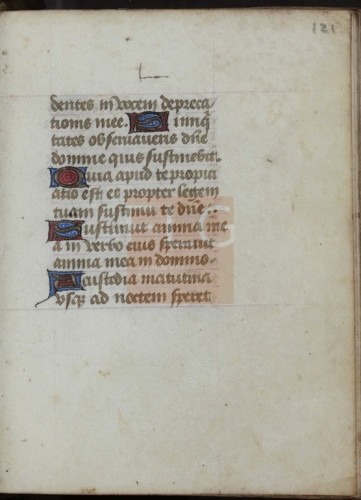 121
dentes in vocem depreca
tionis mee. Si iniq̄
tates observaveris dn̄e
domine quis sustinebit.
Quia apud te propici
atio est et propter legem
tuam sustinui te dn̄e.
Sustinuit anima me
a in verbo eius speravit
anima mea in domino.
A custodia matutina
usq̄ ad noctem speret